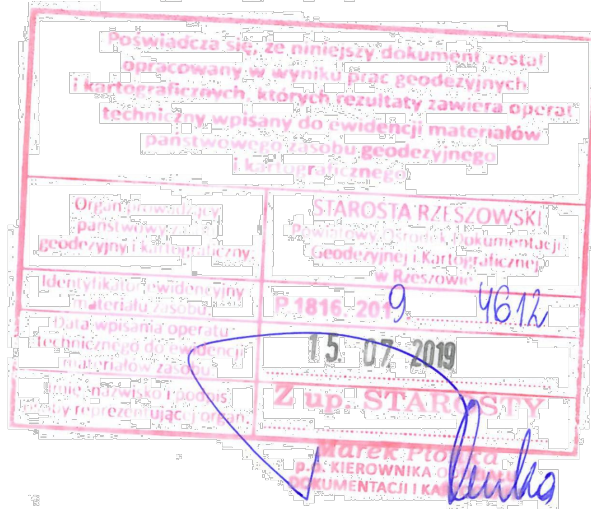 Poświadcza się, że niniejszy dokument został
opracowany w wyniku prac geodezyjnych
i kartograficznych, których rezultaty zawiera operat
techniczny wpisany do ewidencji materiałów
państwowego zasobu geodezyjnego
i kartograficznego
Organ prowadzący
państwowy zasób
geodezyjny i kartograficzny
STAROSTA RZESZOWSKI
Powiatowy Ośrodek Dokumentacji
Geodezyjnej i Kartograficznej
w Rzeszowie
Identyfikator ewidencyjny
materiału zasobu
P.1816.2019 4612
Data wpisania operatu
technicznego do ewidencji
materiałów zasobu
15. 07. 2019
Imię, nazwisko i podpis
osoby reprezentującej organ
Z up. STAROSTY
Marek
p.o. KIEROWNIKA
DOKUMENTACJI I